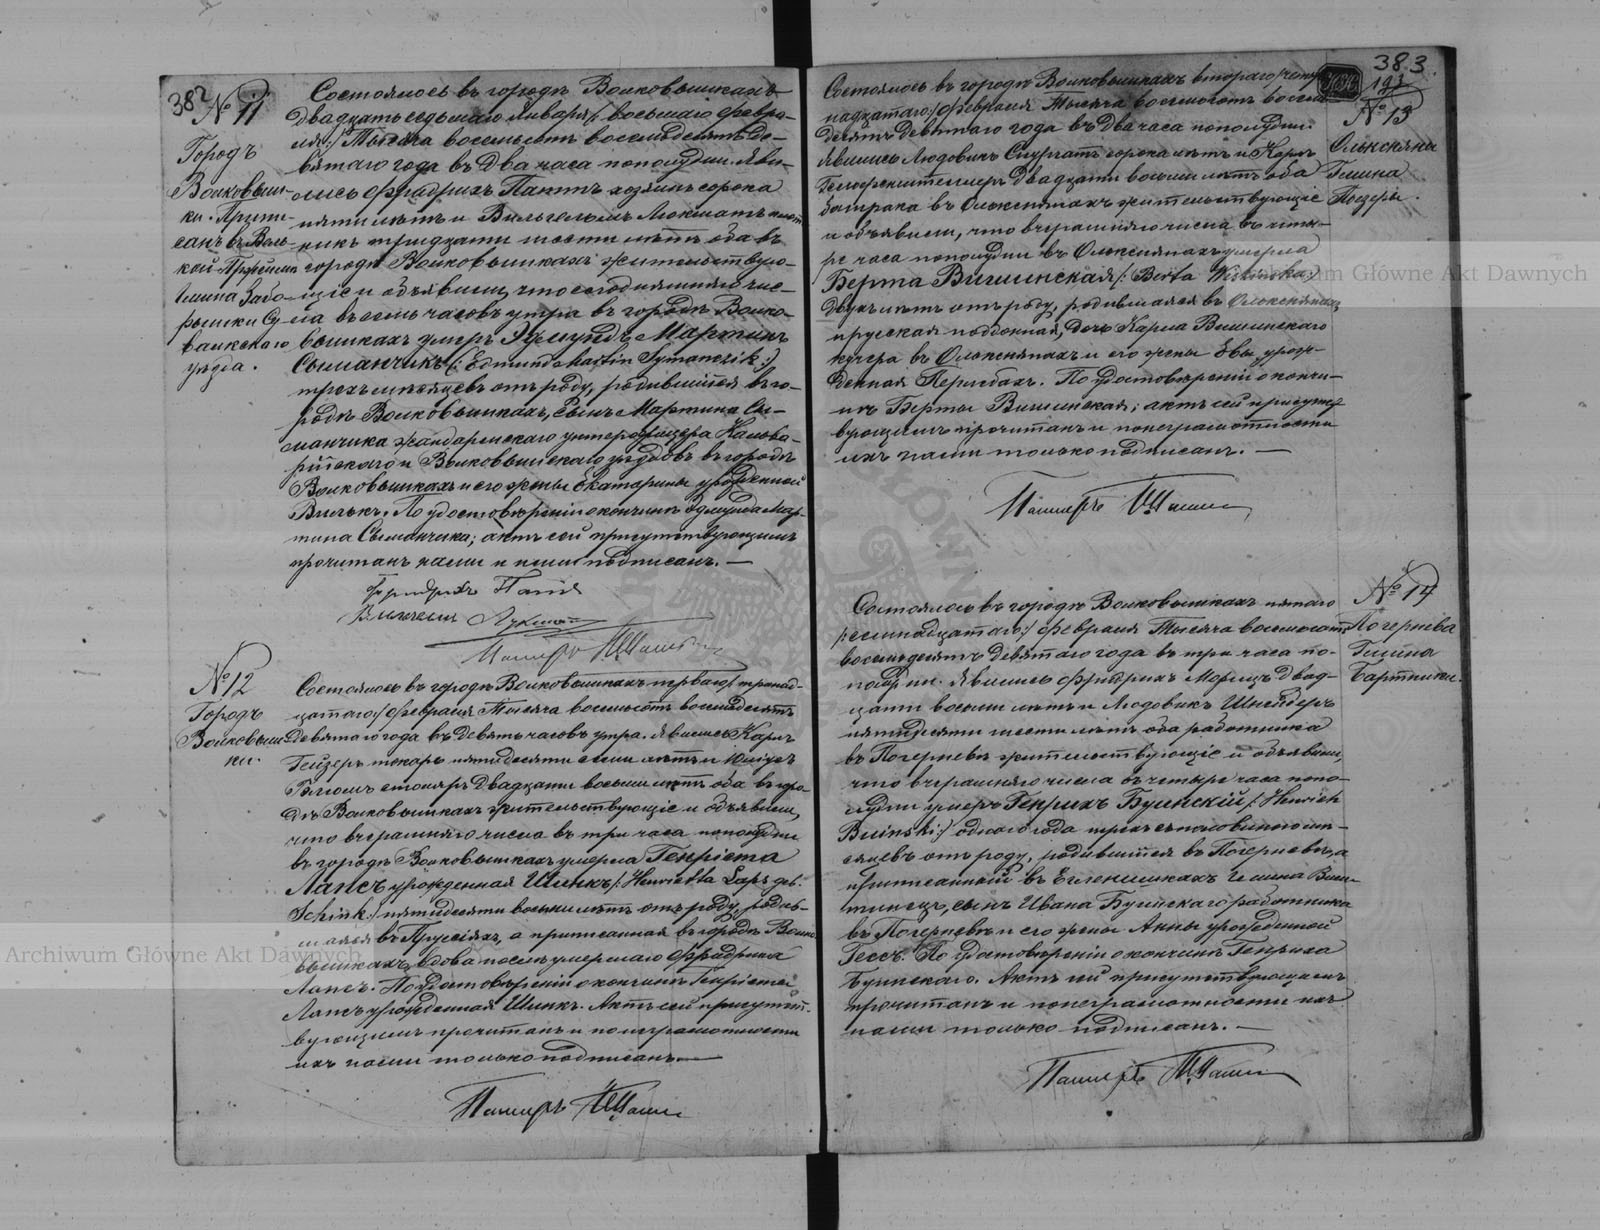 382
№ 11
Городъ
Волковыш-
ки. Припи-
санъ въ Вель-
кой-Пржейми
Гмина Забо-
рышки Су-
валкскаго
уѣзда.
Состоялось въ городѣ Волковышкахъ
двадцать седьмаго Января /: восьмаго Февра-
ля :/ Тысяча восемьсотъ восемьдесятъ де-
вятаго года въ два часа пополудни. Яви-
лись Фридрихъ Пакъ хозяинъ сорока
пяти лѣтъ и Вильгельмъ Люкшатъ
никъ тридцати шести лѣтъ оба въ
городѣ Волковышкахъ жительствую-
щіе и объявили, что сегодняшняго чис-
ла въ семь часовъ утра въ городѣ Волко-
вышкахъ умеръ Эдмундъ Мартинъ
Сыманчикъ /: Edmund Martin Symanczik :/
трехъ мѣсяцевъ отъ роду, родившійся въ го-
родѣ Волковышкахъ, сынъ Мартина Сы-
манчика жандармскаго унтерофицера Кальва-
рійскаго и Волковышскаго уѣздовъ въ городѣ
Волковышкахъ и его жены Екатерины урожденной
По удостовѣреніи о кончинѣ Эдмунда Мар-
тина Сыманчика; актъ сей присутствующимъ
прочитанъ нами и ними подписанъ. —
Фридрихъ
Пасторъ
№ 12
Городъ
Волковыш-
ки.
Состоялось въ городѣ Волковышкахъ перваго /: тринад-
цатаго :/ Февраля Тысяча восемьсотъ восемьдесятъ
девятаго года въ девять часовъ утра. Явились Карлъ
Гейзеръ токарь пятидесяти семи лѣтъ и Юліусъ
столяръ двадцати восьми лѣтъ оба въ горо-
дѣ Волковышкахъ жительствующіе и объявили,
что вчерашняго числа въ три часа пополудни
въ городѣ Волковышкахъ умерла Генріета
Лапсъ урожденная Шинкъ /: Henrietta Laps geb.
Schink :/ пятидесяти восьми лѣтъ отъ роду, родив-
шаяся въ Пруссіяхъ, а приписанная въ городѣ Волко-
вышкахъ, вдова послѣ умершаго Фридриха
Лапсъ. По удостовѣреніи о кончинѣ Генріеты
Лапсъ урожденная Шинкъ. Актъ сей присутст-
вующимъ прочитанъ и по неграмотности
ихъ нами только подписанъ. —
Пасторъ
383
193
№ 13
Ольксняны
Гмина
Поезеры.
Состоялось въ городѣ Волковышкахъ втораго /: четыр-
надцатаго :/ Февраля Тысяча восемьсотъ восемь-
десятъ девятаго года въ два часа пополудни.
Явились Людовикъ сорока лѣтъ и Карлъ
двадцати восьми лѣтъ оба
батрака въ Олькснянахъ жительствующіе
и объявили, что вчерашняго числа въ четы-
ре часа пополудни въ Олькснянахъ умерла
Берта Вишинская /: Berta Wiszinska :/
двухъ лѣтъ отъ роду, родившаяся въ Олькснянахъ,
прусская подданная, дочь Карла Вишинскаго
кучера въ Олькснянахъ и его жены Евы урож-
денная По удостовѣреніи о кончи-
нѣ Берты Вишинская; актъ сей присутст-
вующимъ прочитанъ и по неграмотности
ихъ нами только подписанъ. —
Пасторъ
№ 14
Погернева
Гмина
Бартники.
Состоялось въ городѣ Волковышкахъ пятаго
/: семнадцатаго :/ Февраля Тысяча восемьсотъ
восемьдесятъ девятаго года въ три часа по-
полудни. Явились Фридрихъ Морицъ двад-
цати восьми лѣтъ и Людовикъ Шнейдеръ
пятидесяти шести лѣтъ оба работника
въ Погерневѣ жительствующіе и объявили,
что вчерашняго числа въ четыре часа попо-
лудни умеръ Генрихъ Буинскій /: Henrich
Buinski :/ одного года трехъ съ половиною мѣ-
сяцевъ отъ роду, родившійся въ Погерневѣ, а
приписанный въ Егленишкахъ Гмина
сынъ Ивана Буинскаго работника
въ Погерневѣ и его жены Анны урожденной
Гессъ. По удостовѣреніи о кончинѣ Генриха
Буинскаго. Актъ сей присутствующимъ
прочитанъ и по неграмотности ихъ
нами только подписанъ. —
Пасторъ
Archiwum Główne Akt Dawnych
Archiwum Główne Akt Dawnych